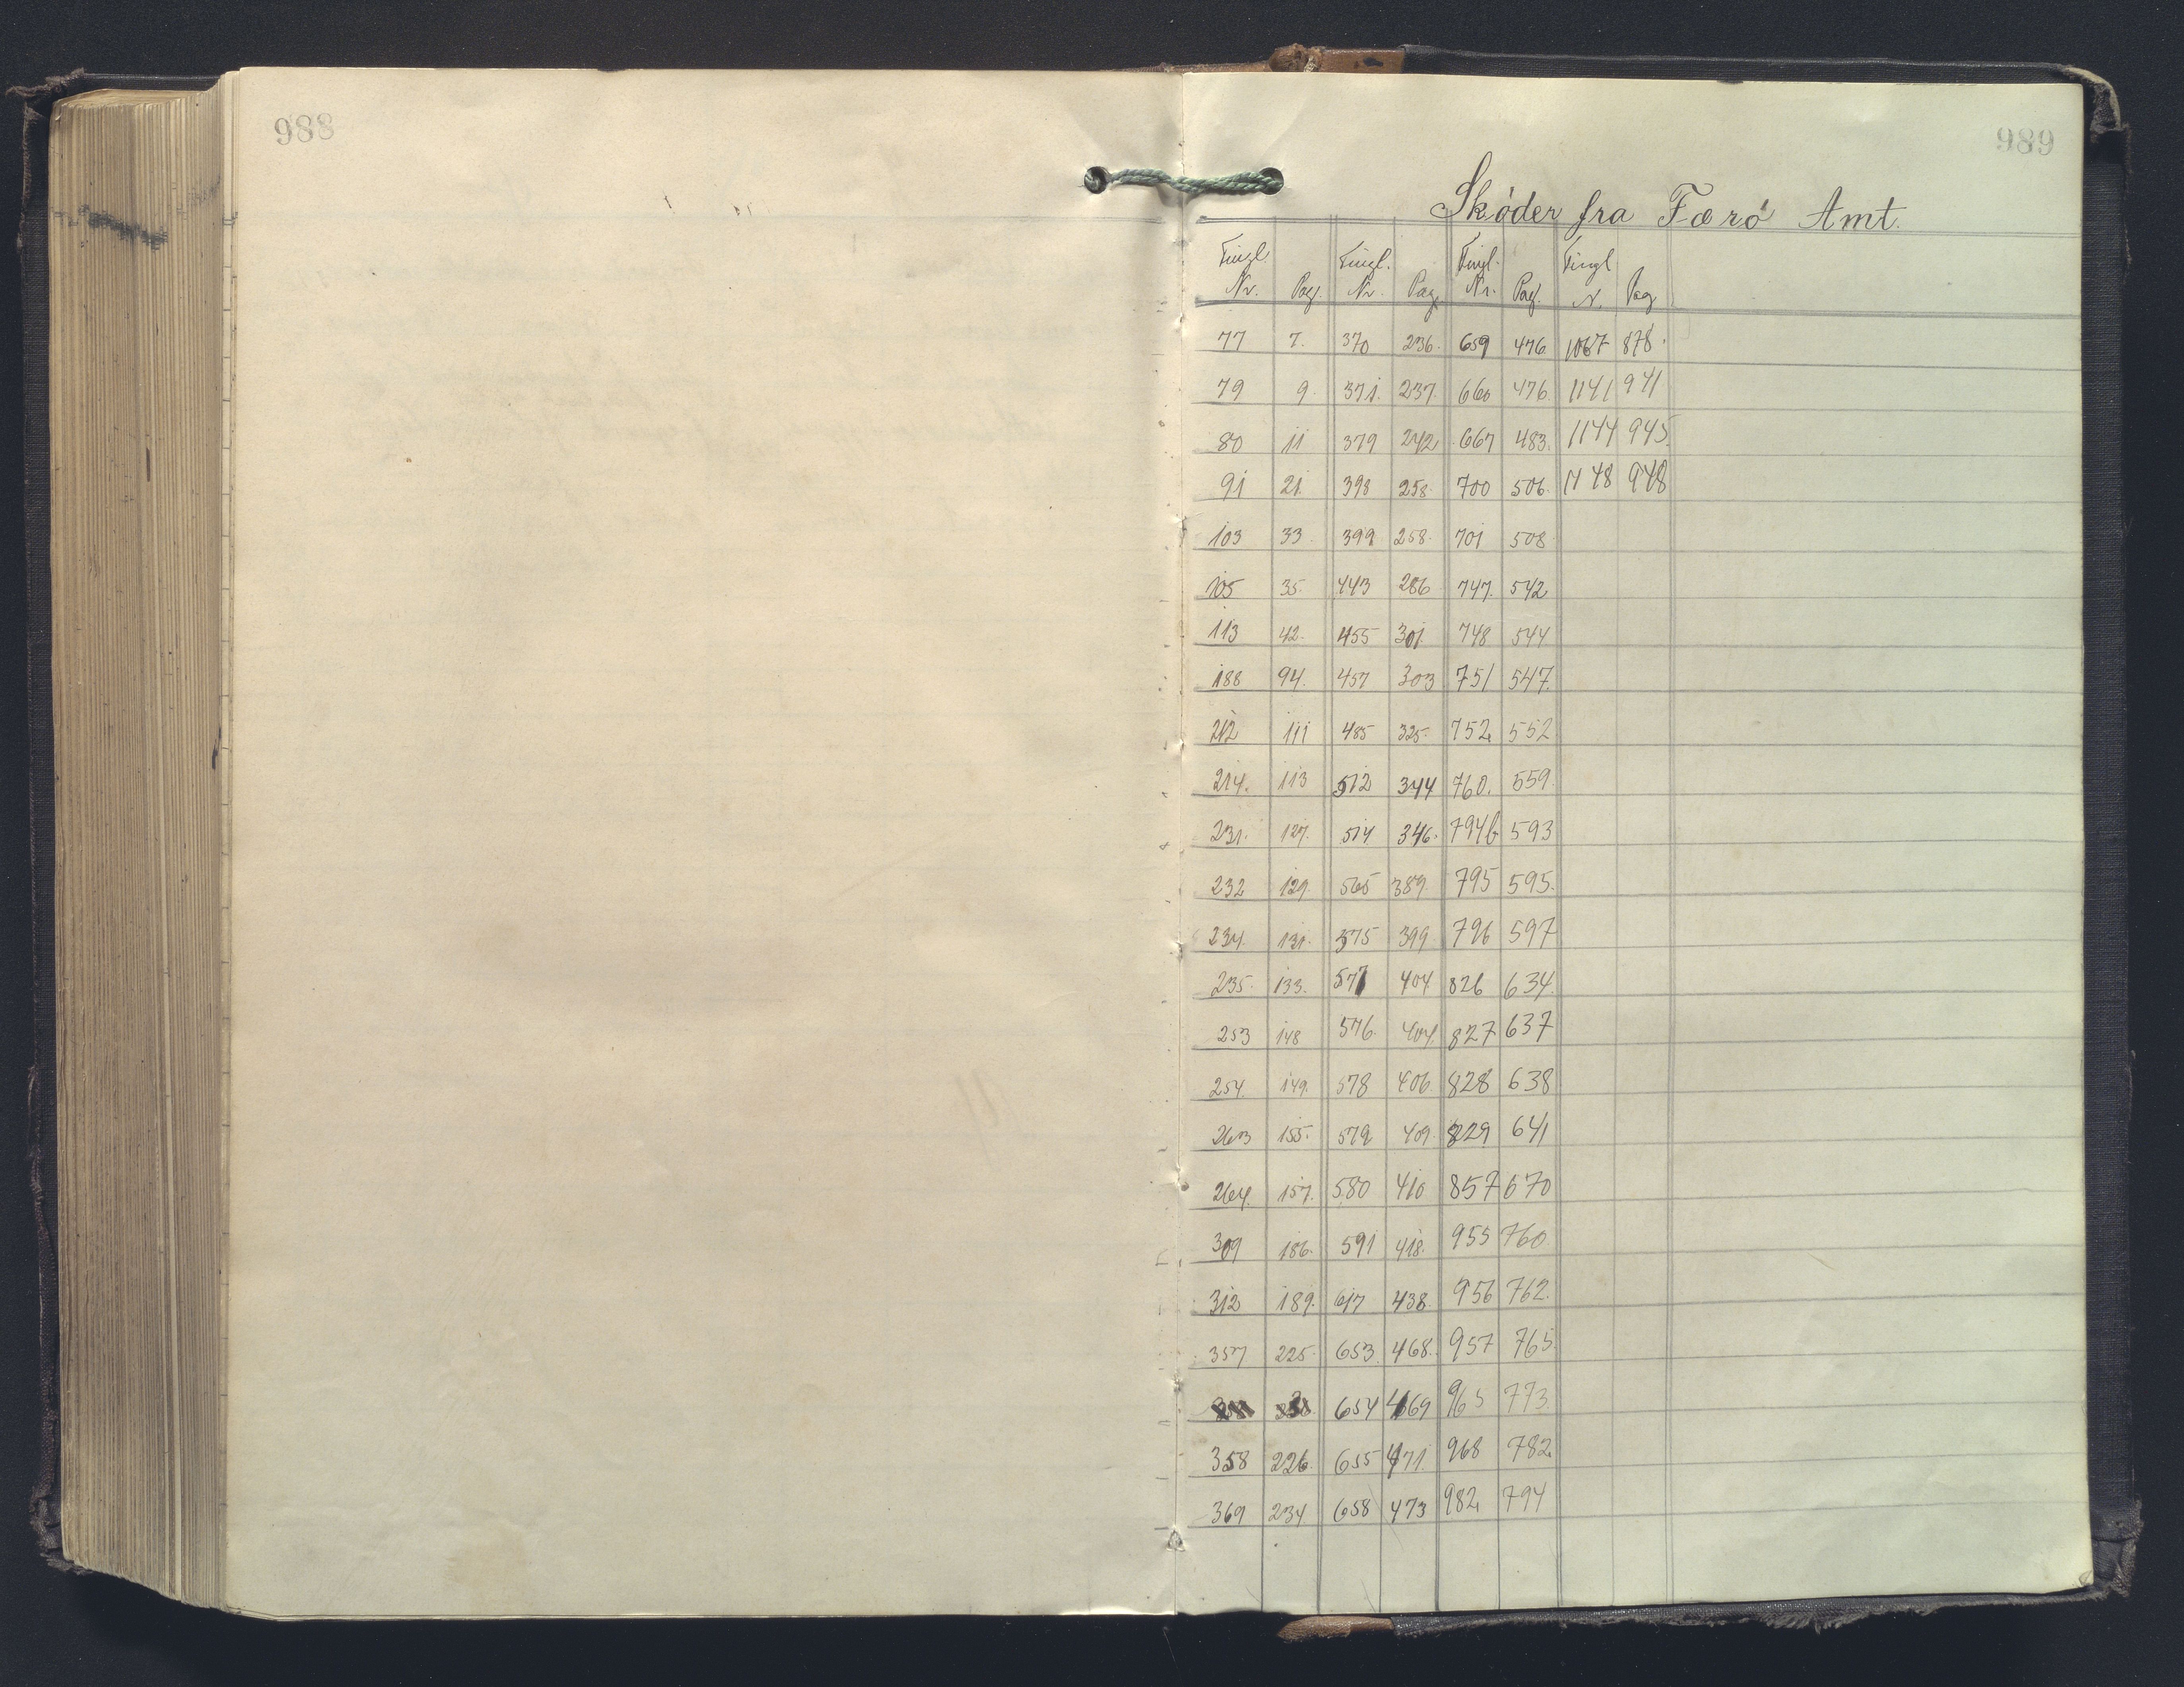 988
989
Sköder fra Færö Amt.
Tingl. Tingl. Tingl. Tingl
Nr. Pag. Nr. Pag. Nr. Pag. N. Pag
77 7. 370 236. 659 476. 1067 878.
79 9. 371. 237. 660 476. 1141 941
80 11 379 242 667 483. 1144 945.
91 21. 398 258. 700 506. 1148 948
103 33. 399 258. 701 508
105 35. 443 286 747. 542
113 42. 455 301. 748 544
188 94. 457 303 751 547.
212 111 485 325. 752. 552
214. 113 512 344 760. 559.
231. 127. 514 346. 794b 593
232 129. 565 389. 795 595.
234. 131. 575 399. 796 597
235. 133. 571 404 826 634.
253 148 576. 404. 827 637
254. 149. 578 406 828 638
263 155. 579 409. 829 641
264. 157. 580 410 857 670
309 186. 591 418. 955 760
312 189. 617 438. 956 762.
357 225. 653. 468. 957 765.
654 469 965 773.
358 226. 655 471. 968 782.
369 234 658 473 982. 794